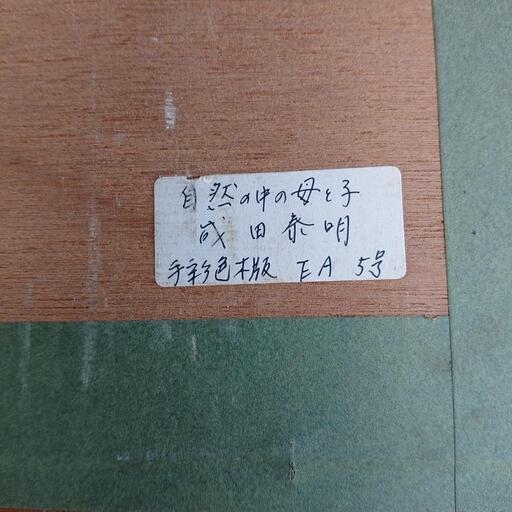 自然の中の母と子
成田泰明
手彩色木版 EA 5号